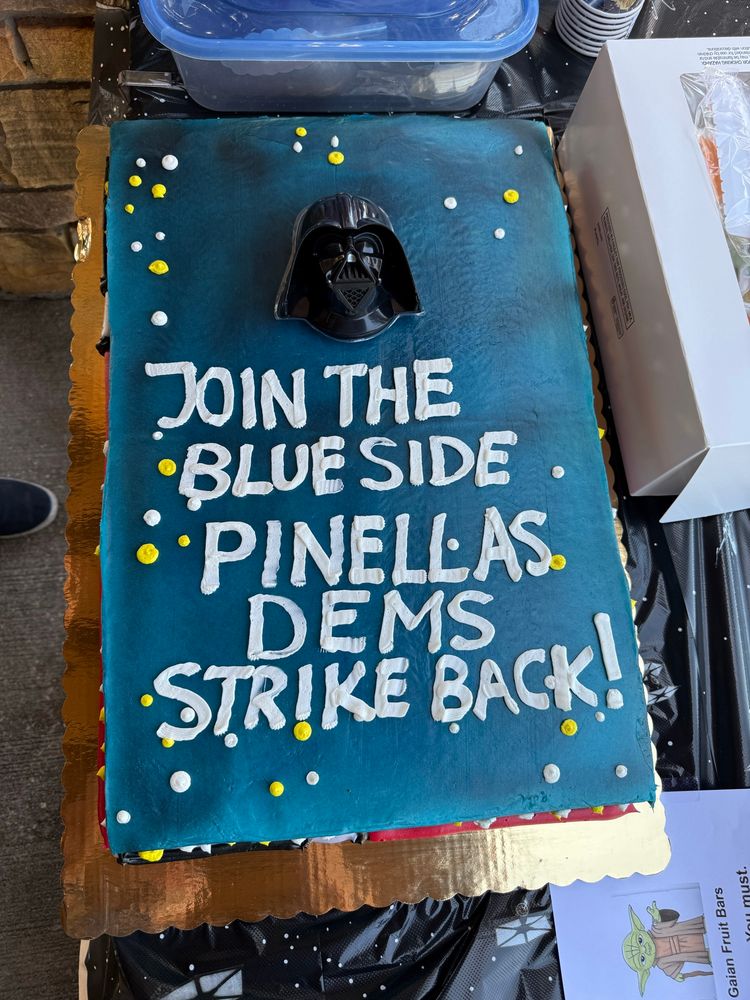 JOIN THE
BLUE SIDE
PINELLAS
DEMS
STRIKE BACK!
Gaian Fruit Bars
You must.